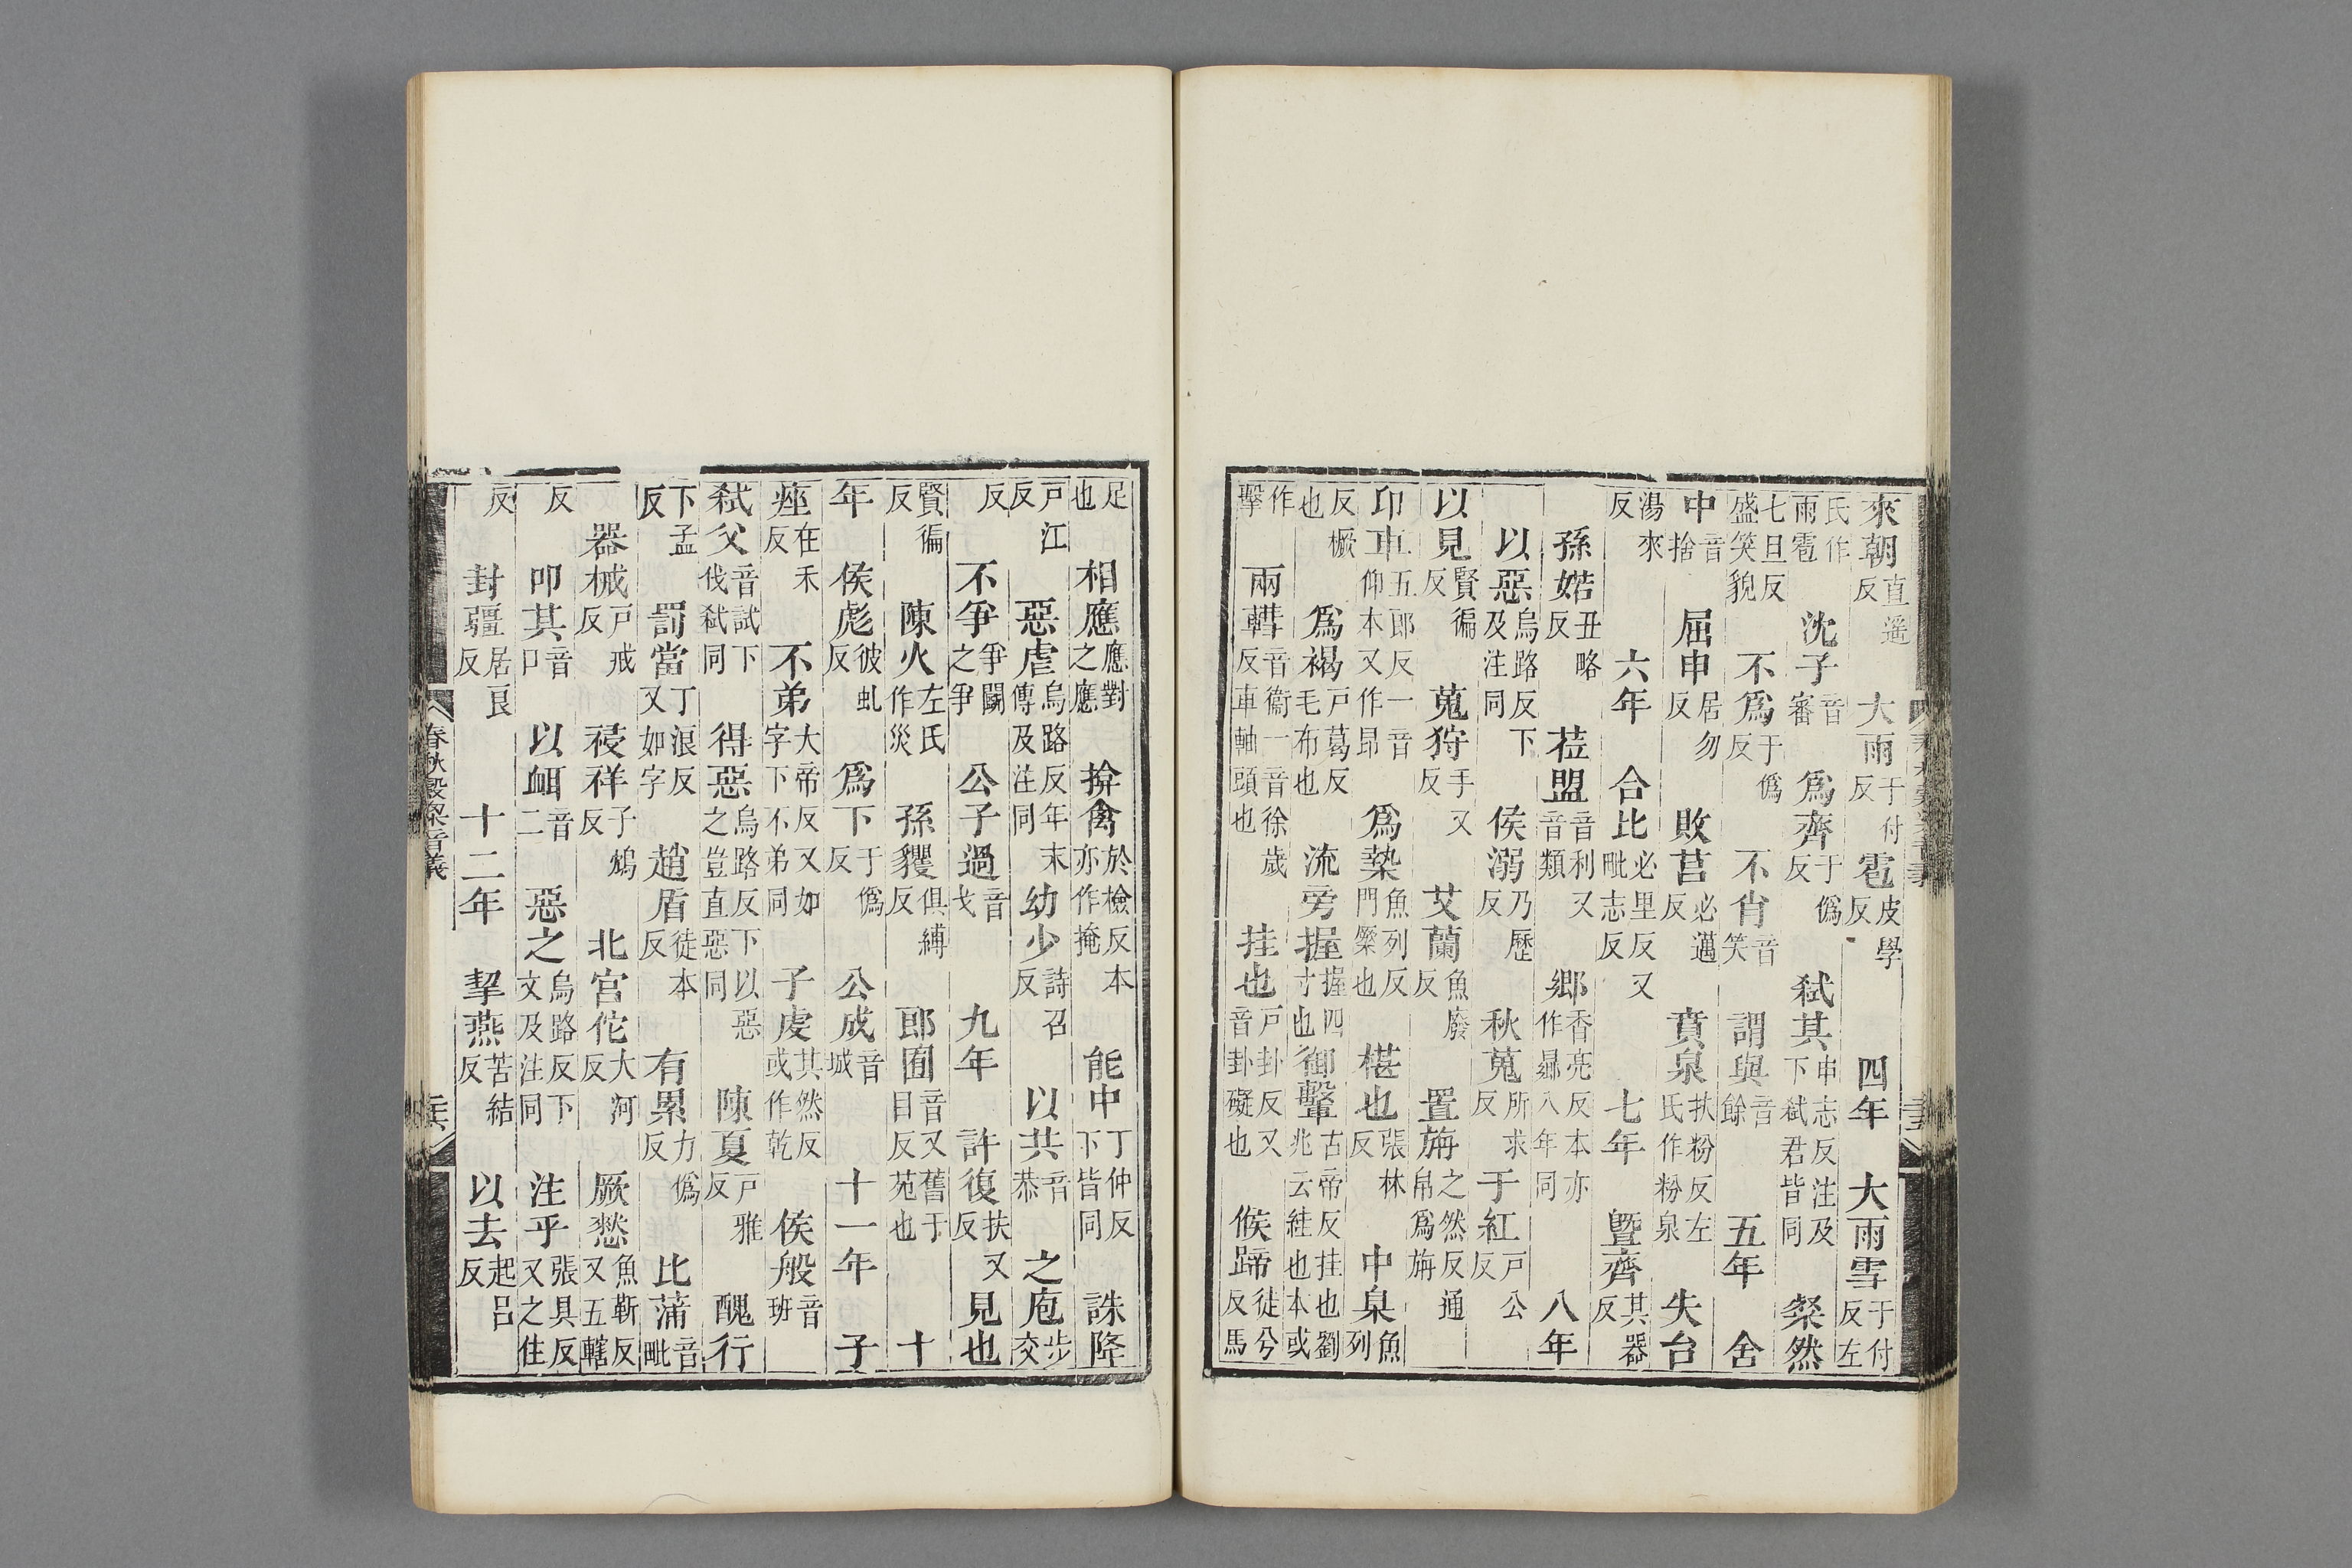 來朝直遥反大雨于付反雹皮學反四年大雨雪于付反左
氏作雨雹沈子音審爲齊于僞反弒其申志反注及下弒君皆同粲然
七旦反盛笑貌不爲于僞反不肖音笑謂與音餘五年舍
中音捨屈申居勿反敗莒必邁反賁泉扶粉反左氏作粉泉失台
湯來反六年合比必里反又毗志反七年曁齊其器反
孫婼丑略反莅盟音利又音類鄉香亮反本亦作曏八年同八年
以惡烏路反下及注同侯溺乃歷反秋蒐所求反于紅戶公反
以見賢徧反蒐狩手又反艾蘭魚廢反置旃之然反通帛爲旃
卬車五郎反一音仰本又作昂爲槷魚列反門橜也椹也張林反中臬魚列
反橛也爲褐戶葛反毛布也流旁握握四寸也御轚古帝反挂也劉兆云絓也本或
作擊兩轊音衞一音徐歲反車軸頭也挂也戶卦反又音卦礙也候蹄徒兮反馬
足也相應應對之應揜禽於檢反本亦作掩能中丁仲反下皆同誅降
戶江反惡虐烏路反年末傳及注同幼少詩召反以共音恭之庖步交
反不爭爭鬬之爭公子過音戈九年許復扶又反見也
賢徧反陳火左氏作災孫貜俱縛反郎囿音又舊于目反苑也十
年侯彪彼虬反爲下于僞反公成音城十一年子
痤在禾反不弟大帝反又如字下不弟同子虔其然反或作乾侯般音班
弒父音試下伐弒同得惡烏路反下以惡之豈直惡同陳夏戶雅反醜行
下孟反罰當丁浪反又如字趙盾徒本反有累力僞反比蒲音毗
器械戶戒反祲祥子鴆反北宮佗大河反厥憖魚靳反又五轄
反叩其音口以衈音二惡之烏路反下文及注同注乎張具反又之住
反封疆居良反十二年挈燕苦結反以去起呂反
春秋穀梁音義
二六